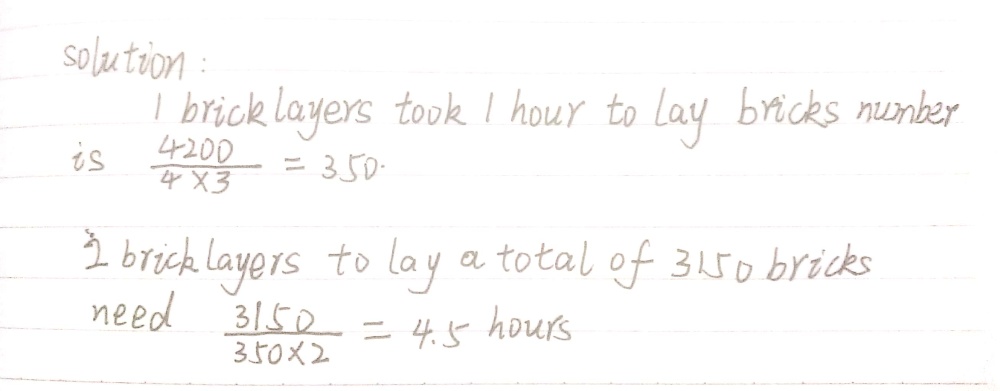 solution:
1 bricklayers took 1 hour to lay bricks number
is 4200/4×3 = 350.
2 bricklayers to lay a total of 3150 bricks
need 3150/350×2 = 4.5 hours